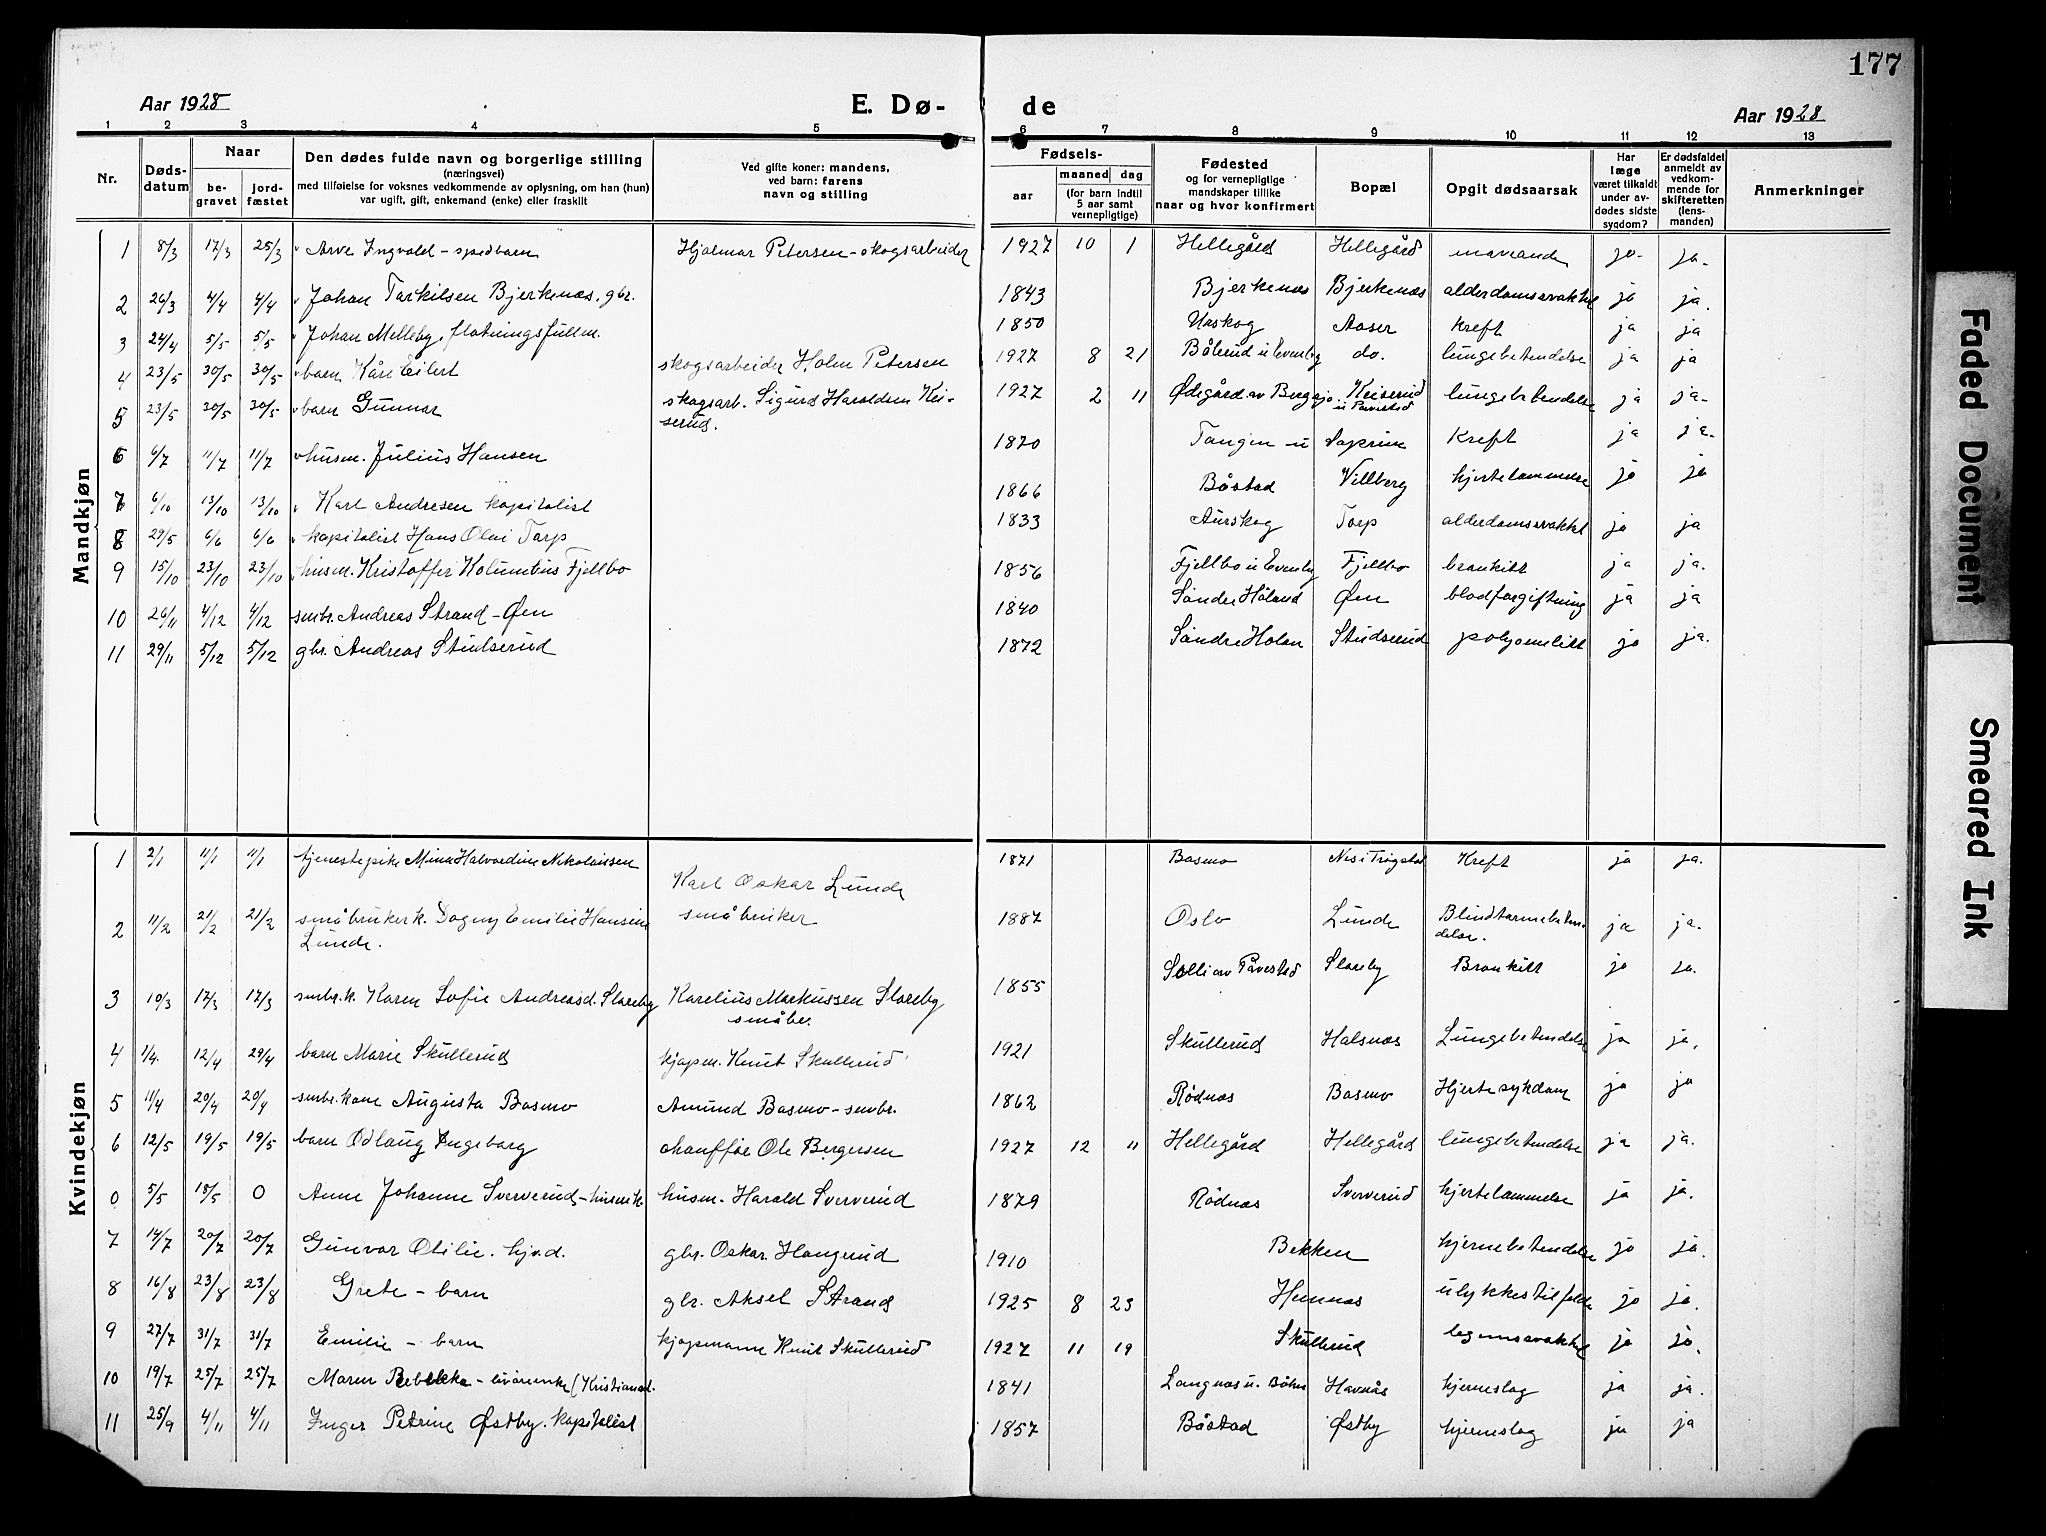 177
Aar 1928
E. Dø-
de
Aar 1928
1 2 3 4 5 6 7 8 9 10 11 12 13
Nr.
Døds-
datum
Naar
be-
gravet
jord-
fæstet
Den dødes fulde navn og borgerlige stilling
(næringsvei)
med tilføielse for voksnes vedkommende av oplysning, om han (hun)
var ugift, gift, enkemand (enke) eller fraskilt
Ved gifte koner: mandens,
ved barn: farens
navn og stilling
Fødsels-
aar
maaned dag
(for barn indtil
5 aar samt
vernepligtige)
Fødested
og for vernepligtige
mandskaper tillike
naar og hvor konfirmert
Bopæl
Opgit dødsaarsak
Har
læge
været tilkaldt
under av-
dødes sidste
sygdom?
Er dødsfaldet
anmeldt av
vedkom-
mende for
skifteretten
(lens-
manden)
Anmerkninger
Mandkjøn
1 8/3 17/3 25/3 Arve Ingvald - spedbarn Hjalmar Petersen - skogsarbeider 1927 10 1 Hellegård Hellegård ja- ja-
2 26/3 4/4 4/4 Johan Tarkilsen Bjerkenæs. gbr. 1843 Bjerkenæs Bjerkenæs alderdomssvakhet ja ja.
3 24/4 5/5 5/5 Johan Melleby, fløtningsfullm. 1850 Urskog Aaser Kreft ja ja
4 23/5 30/5 30/5 barn Kåre Eilert skogsarbeider Holm Petersen 1927 8 21 Bålerud u Evenby do. lungebetendelse ja ja
5 23/5 30/5 30/5 barn Gunnar skogsarb. Sigurd Haraldsen Kei-
serud. 1927 2 11 Ødegård av Bergsjø. Keiserud
u Påvestad lungebetendelse ja ja-
6 6/7 11/7 11/7 husm. Julius Hansen 1870 Tangen u Kreft ja ja.
7 6/10 13/10 13/10 Karl Andresen kapitalist 1866 Båstad Villberg hjertelammelse ja ja
8 29/5 6/6 6/6 kapitalist Hans Olai Tarp 1833 Aurskog Tarp alderdomssvakhet ja ja
9 15/10 23/10 23/10 husm. Kristoffer Kolumbus Fjellbo 1856 Fjellbo u Evenby Fjellbo bronkitt ja ja.
10 26/11 4/12 4/12 smbr. Andreas Strand - Øen 1840 Søndre Høland Øen blodforgiftning ja ja
11 29/11 5/12 5/12 gbr. Andreas Studserud 1872 Søndre Holan Studserud ja ja.
Kvindekjøn
1 2/1 11/1 11/1 tjenestepike Mina Halvardine Nikolaissen 1871 Basmo Nes i Trøgstad Kreft ja ja.
2 11/2 21/2 21/2 småbrukerk. Dagny Emilie Hansine
Lunde. Karl Oskar Lunde
småbruker 1887 Oslo Lunde Blindtarmebeten-
delse. ja ja.
3 10/3 17/3 17/3 smbr.k. Karen Sofie Andreasd. Sloreby Karelius Markussen Sloreby
småbr. 1855 Solli av Påvestad Sloreby Bronkitt ja ja.
4 1/4. 12/4 29/4 barn Marie Skullerud kjøpm. Knut Skullerud 1921 Skullerud Halsnæs Lungebetendelse ja ja.
5 11/4 20/4 20/4 smbr.kone Augusta Basmo Amund Basmo - smbr. 1862 Rødnæs Basmo Hjertesykdom ja ja
6 12/5 19/5 19/5 barn Odlaug Ingeborg chauffør Ole Bergersen 1927 12 11 Hellegård Hellegård lungebetendelse ja ja.
0 5/5 18/5 0 Anne Johanne Sververud - husm.k. husm. Harald Sververud 1879 Rødnæs Sververud hjertelammelse ja ja.
7 14/7 20/7 20/7 Gunvor Otilie. hjv.d. gbr. Oskar Haugerud 1910 Bekken hjernebetendelse ja ja.
8 16/8 23/8 23/8 Grete - barn gbr. Aksel Strand 1925 8 23 Hennæs ulykkestilfelde ja ja.
9 27/7 31/7 31/7 Emilie - barn kjøpmann Knut Skullerud 1927 11 19 Skullerud legemssvakhet ja ja.
10 19/7 25/7 25/7 Maren Rebekka - (Kristiansd. 1841 Langnæs u. Havnås hjerneslag ja ja.
11 25/9 4/11 4/11 Inger Petrine Østby. kapitalist 1857 Båstad Østby hjerneslag ja ja
Faded Document
Smeared Ink